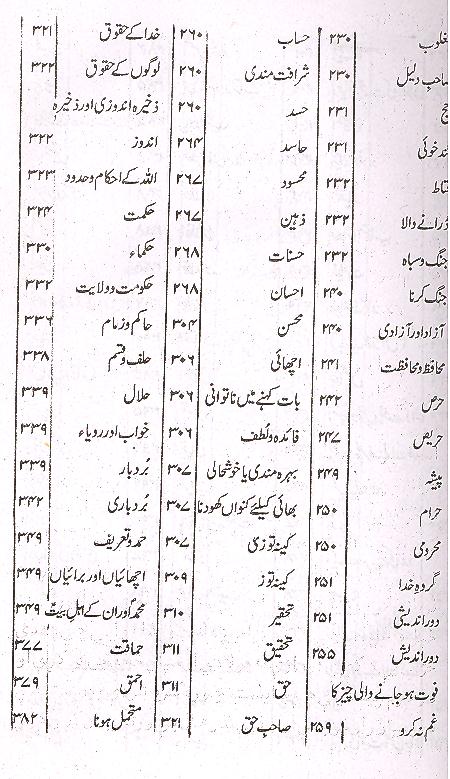 غلوب ۲۳۰
صاحبِ دلیل ۲۳۰
حج ۲۳۱
ندخوئی ۲۳۱
تاط ۲۳۲
ڈرانے والا ۲۳۲
جنگ وسپاہ ۲۳۲
جنگ کرنا ۲۴۰
آزاد اور آزادی ۲۴۰
محافظ ومحافظت ۲۴۱
حرص ۲۴۲
حریص ۲۴۷
پیشہ ۲۴۹
حرام ۲۵۰
محرومی ۲۵۰
گروہِ خدا ۲۵۱
دور اندیشی ۲۵۱
دور اندیش ۲۵۵
فوت ہوجانے والی چیز کا
غم نہ کرو ۲۵۹
حساب ۲۶۰
شرافت مندی ۲۶۰
حسد ۲۶۰
حاسد ۲۶۴
محسود ۲۶۷
ذہین ۲۶۷
حسنات ۲۶۸
احسان ۲۶۸
محسن ۳۰۴
اچھائی ۳۰۶
بات کہنے میں ناتوانی ۳۰۶
فائدہ ولطف ۳۰۶
بہرہ مندی یا خوشحالی ۳۰۷
بھائی کیلئے کنواں کھودنا ۳۰۷
کینہ توزی ۳۰۷
کینہ توز ۳۰۹
تحقیر ۳۱۰
تحقیق ۳۱۱
حق ۳۱۱
صاحبِ حق ۳۲۱
خدا کے حقوق ۳۲۱
لوگوں کے حقوق ۳۲۲
ذخیرہ اندوزی اور ذخیرہ
اندوز ۳۲۲
اللہ کے احکام وحدود ۳۲۳
حکمت ۳۲۴
حکماء ۳۳۰
حکومت وولایت ۳۳۲
حاکم وزمام ۳۳۶
حلف وقسم ۳۳۸
حلال ۳۳۹
خواب اور رویاء ۳۳۹
بُردبار ۳۳۹
بُردباری ۳۴۲
حمد وتعریف ۳۴۹
اچھائیاں اور برائیاں ۳۴۹
محمدؐ اوران کے اہلِ بیتؑ ۳۴۹
حماقت ۳۷۷
احمق ۳۷۹
متحمل ہونا ۳۸۲